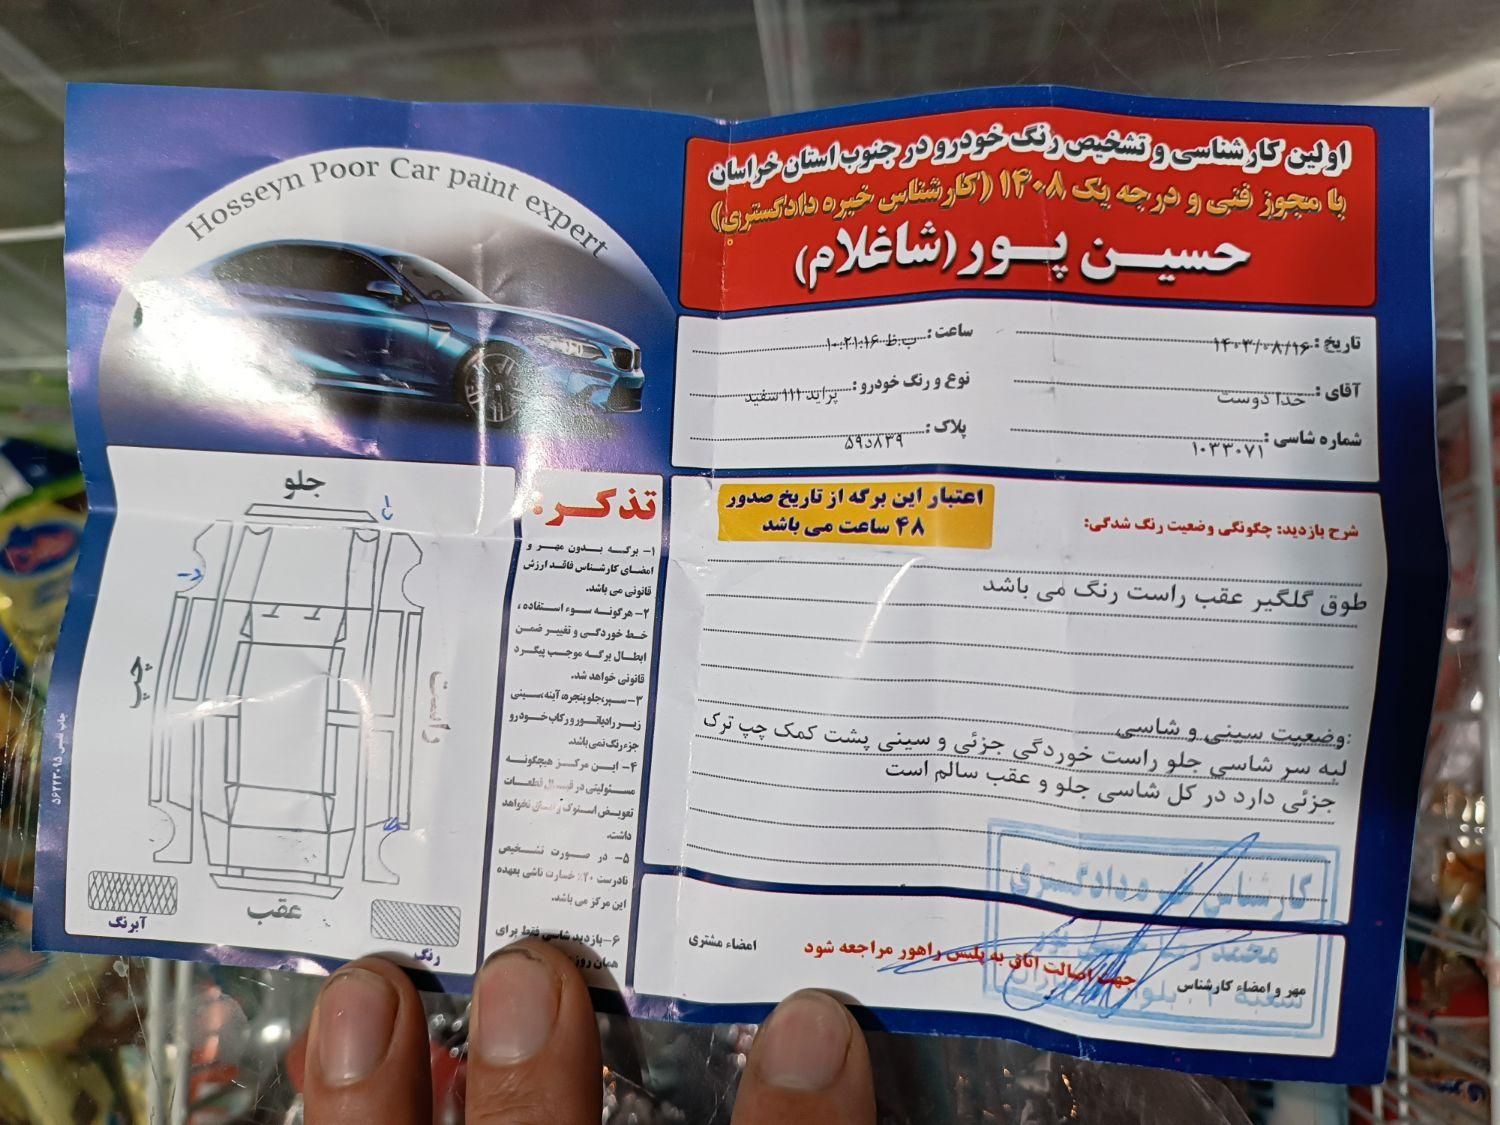 Hosseyn Poor Car paint expert
اولین کارشناسی و تشخیص رنگ خودرو در جنوب استان خراسان
با مجوز فنی و درجه یک ۱۴۰۸ (کارشناس خبره دادگستری)
حسین پور (شاغلام)
تاریخ: ۱۴۰۳/۰۸/۱۶
ساعت: ۱۰:۲۱:۱۶ ب.ظ
آقای: خدا دوست
نوع و رنگ خودرو: پراید ۱۱۱ سفید
شماره شاسی: ۱۰۳۳۰۷۱
پلاک: ۵۹د۸۳۹
شرح بازدید: چگونگی وضعیت رنگ شدگی:
اعتبار این برگه از تاریخ صدور
۴۸ ساعت می باشد
طوق گلگیر عقب راست رنگ می باشد
وضعیت سینی و شاسی:
لبه سر شاسی جلو راست خوردگی جزئی و سینی پشت کمک چپ ترک
جزئی دارد در کل شاسی جلو و عقب سالم است
کارشناس خبره دادگستری
مهر و امضاء کارشناس
جهت اصالت اتاق به پلیس راهور مراجعه شود
امضاء مشتری
تذکر:
۱- برگه بدون مهر و
امضای کارشناس فاقد ارزش
قانونی می باشد.
۲- هرگونه سوء استفاده،
خط خوردگی و تغییر ضمن
ابطال برگه موجب پیگرد
قانونی خواهد شد.
۳- سپر، جلو پنجره، آینه، سینی
زیر رادیاتور و رکاب خودرو
جزء رنگ نمی باشد.
۴- این مرکز هیچگونه
مسئولیتی در قبال قطعات
تعویض استوک و نخواهد
داشت.
۵- در صورت تشخیص
نادرست ۲۰٪ خسارت ناشی بعهده
این مرکز می باشد.
۶- بازدید شاسی فقط برای
همان روز
جلو
چپ
راست
عقب
آبرنگ
رنگ
چاپ نفیس ۵۶۲۲۳۰۹۵